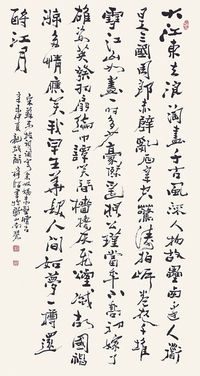 大江東去浪淘盡千古風流人物故壘西邊人道
是三國周郎赤壁亂石穿空驚濤拍岸卷起千堆
雪江山如畫一時多少豪傑遙想公瑾當年小喬初嫁了
雄姿英發羽扇綸巾譚笑間檣櫓灰飛煙滅故國神
遊多情應笑我早生華髮人間如夢一樽還
酹江月